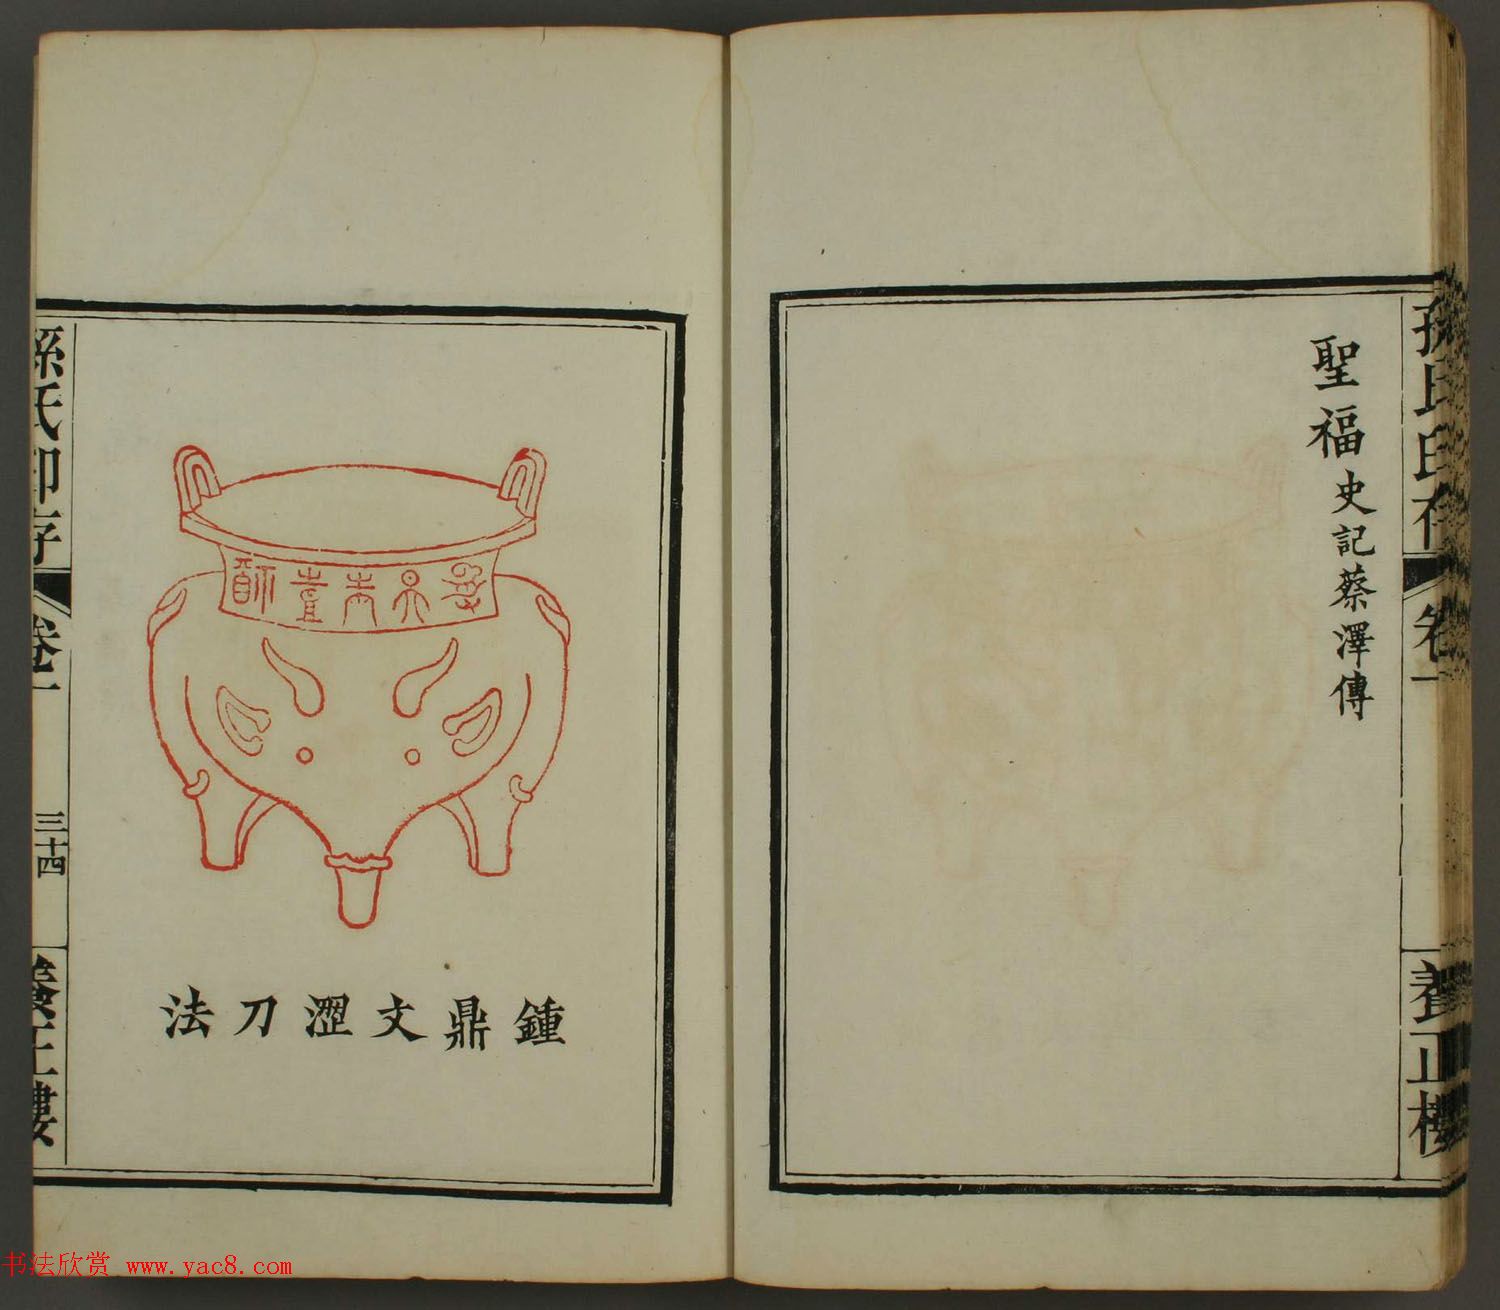 孫氏印存
卷一
養正樓
聖福史記蔡澤傳
鍾鼎文澀刀法
孫氏印存
卷一
三十四
養正樓
书法欣赏 www.yac8.com